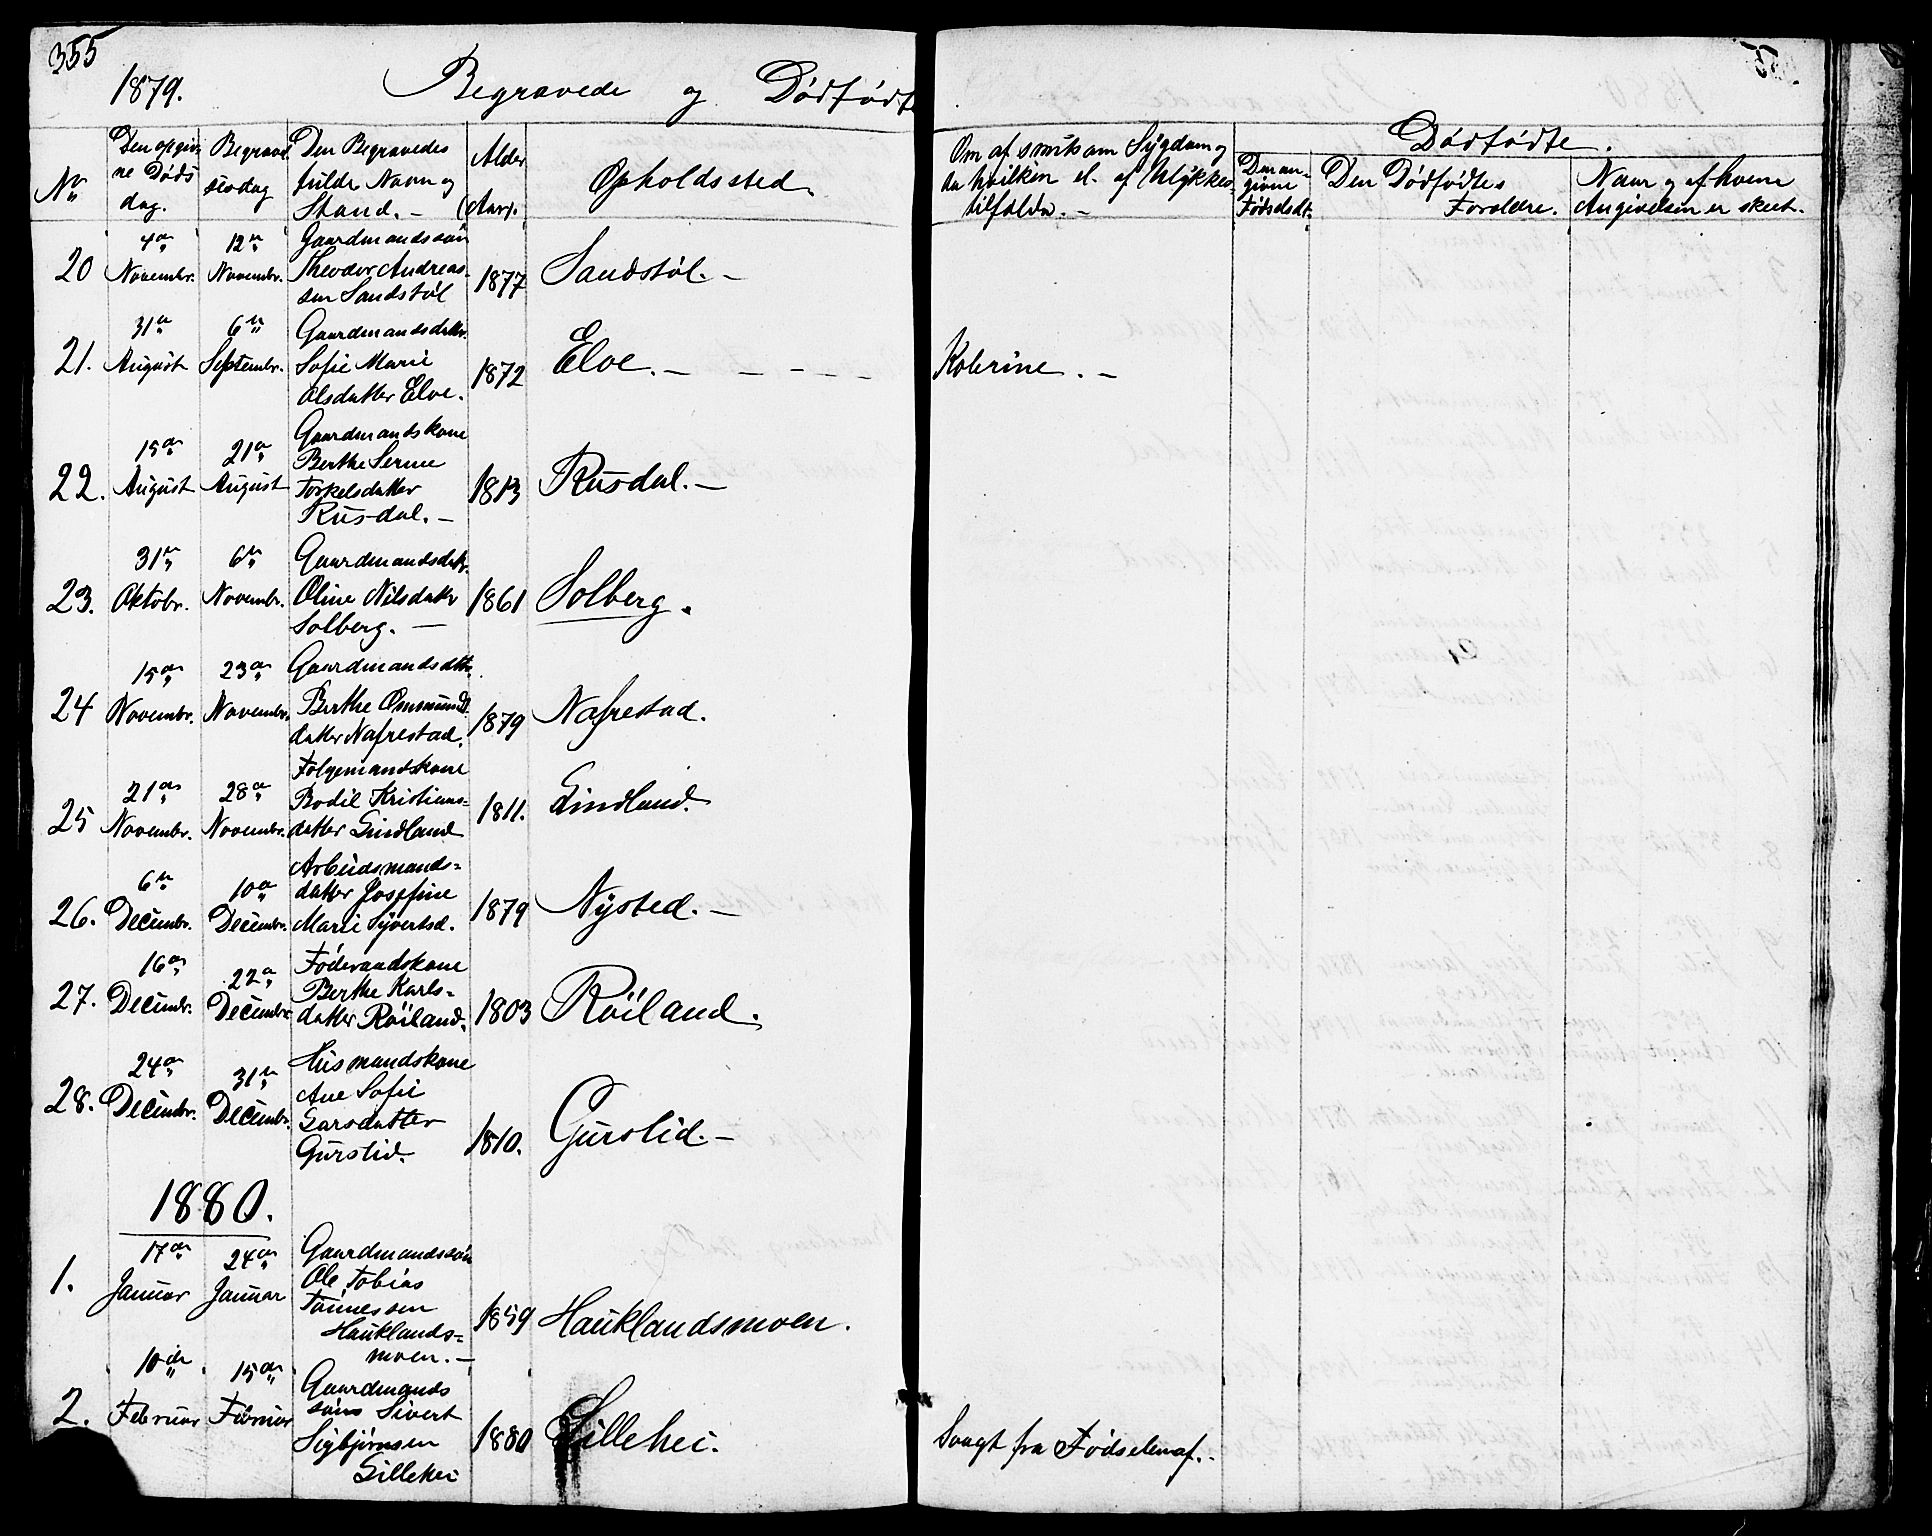 355
1879. Begravede og Dødfødte
No
Den opgiv-
ne Døds
dag.
Begravel
sesdag
Den Begravedes
fulde Navn og
Stand. -
Alder
(Aar).
Opholdssted.
Om af smitsom Sygdom og
da hvilken el. af Ulykkes-
tilfælde. -
Dødfødte.
Den an-
givne
Fødselsdt.
Den Dødfødtes
Forældre.
Naar og af hvem
Angivelsen er skeet.
20 4de Novembr. 12te Novembr. Gaardmandssøn
Theodor Andreas-
sen Sandstøl 1877 Sandstøl. -
21. 31te August 6te Septembr. Gaardmandsdattr.
Sofie Marie
Olsdatter Elve. 1872 Elve. - Kolerine. -
22. 15de August 21de August Gaardmandskone
Berthe Serine
Torkelsdatter
Rusdal. - 1813 Rusdal. -
23. 31te Oktobr. 6te Novembr. Gaardmandsdatr.
Oline Nilsdatr
Solberg. - 1861 Solberg.
24 15de Novembr. 23de Novembr. Gaardmandsdattr.
Berthe Ommunds
datter Nafrestad. 1879 Nafrestad.
25 21de Novembr. 28de Novembr. Følgemandskone
Bodil Kristians-
datter Lindland 1811. Lindland.
26. 6te Decembr. 10de Decembr. Arbeidsmands-
datter Josefine
Marie Syvertsd. 1879 Nysted. -
27. 16de Decembr. 22de Decembr. Føderaadskone
Berthe Karls-
datter Røiland. 1803 Røiland.
28. 24de Decembr. 31te Decembr. Husmandskone
Ane Sofie
Larsdatter
Gurslid. 1810. Gurslid. -
1880.
1. 17de Januar 24de Januar Gaardmandssøn
Ole Tobias
Tønnessen
Hauklands-
moen. - 1859 Hauklandsmoen.
2. 10de Februar 15de Februar Gaardmands
søn Sivert
Sigbjørnsen
Lillehei 1880 Lillehei. Svagt fra Fødselen af. -